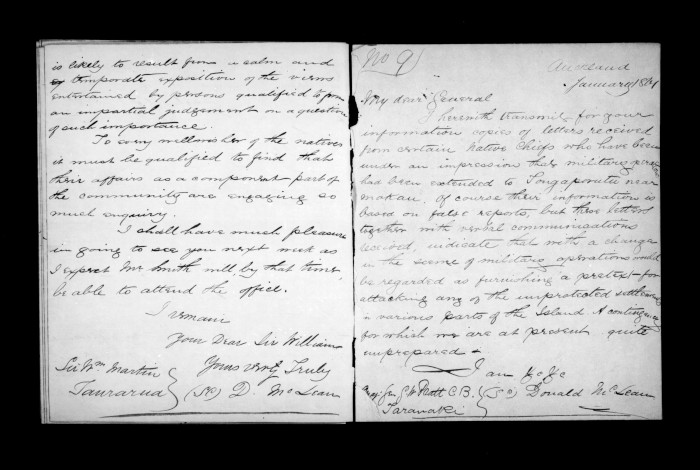 is likely to result from a calm and
temporate exposition of the views
entertained by persons qualified to form
an impartial judgement on a question
of such importance.
To every millonsher of the natives
it must be qualified to find that
their affairs as a component part of
the community are engaging so
much enquiry.
I shall have much pleasure
in going to see you next week as
I expect Mr Smith will by that time
be able to attend the office.
I remain
Your Dear Sir William
Yours very Truly
Sir Wm Martin
Taurarua
(Sd) D. McLean
No 9
Auckland
January 1861
My dear General
I herewith transmit for your
information copies of letters received
from certain Native Chiefs who have been
under an impression that military
has been extended to Tongaporutu near
Mokau, Of course their information is
based on false reports, but these letters
together with verbal communications
received, indicate that with a change
in the scene of military operations would
be regarded as furnishing a pretext for
attacking any of the unprotected settlements
in various parts of the Island A contingency
for which we are at present quite
unprepared
I am &c &c
(Sd) Donald McLean
Maj. Gen. Pratt C.B.
Taranaki